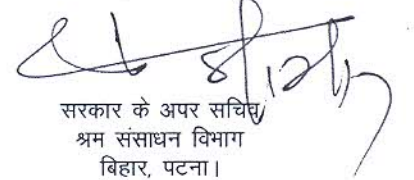 सरकार के अपर सचिव,
श्रम संसाधन विभाग
बिहार, पटना।